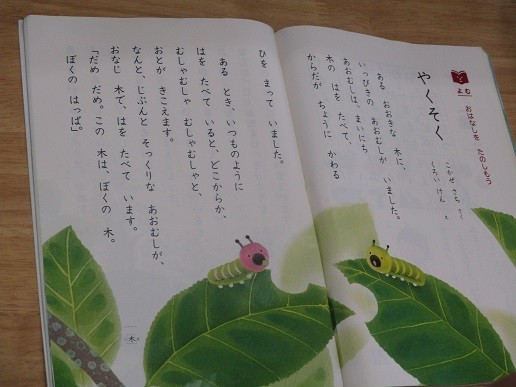 よむ
おはなしを たのしもう
やくそく
こかぜ さち さく
くろい けん え
ある おおきな 木に、
いっぴきの あおむしが いました。
あおむしは、まいにち
木の はを たべて、
からだが ちょうに かわる
ひを まって いました。
ある とき、いつものように
はを たべて いると、どこからか、
むしゃむしゃ むしゃむしゃと、
おとが きこえます。
なんと、じぶんと そっくりな あおむしが、
おなじ 木で、はを たべて います。
「だめ だめ。この 木は、ぼくの 木。
ぼくの はっぱ」。
木